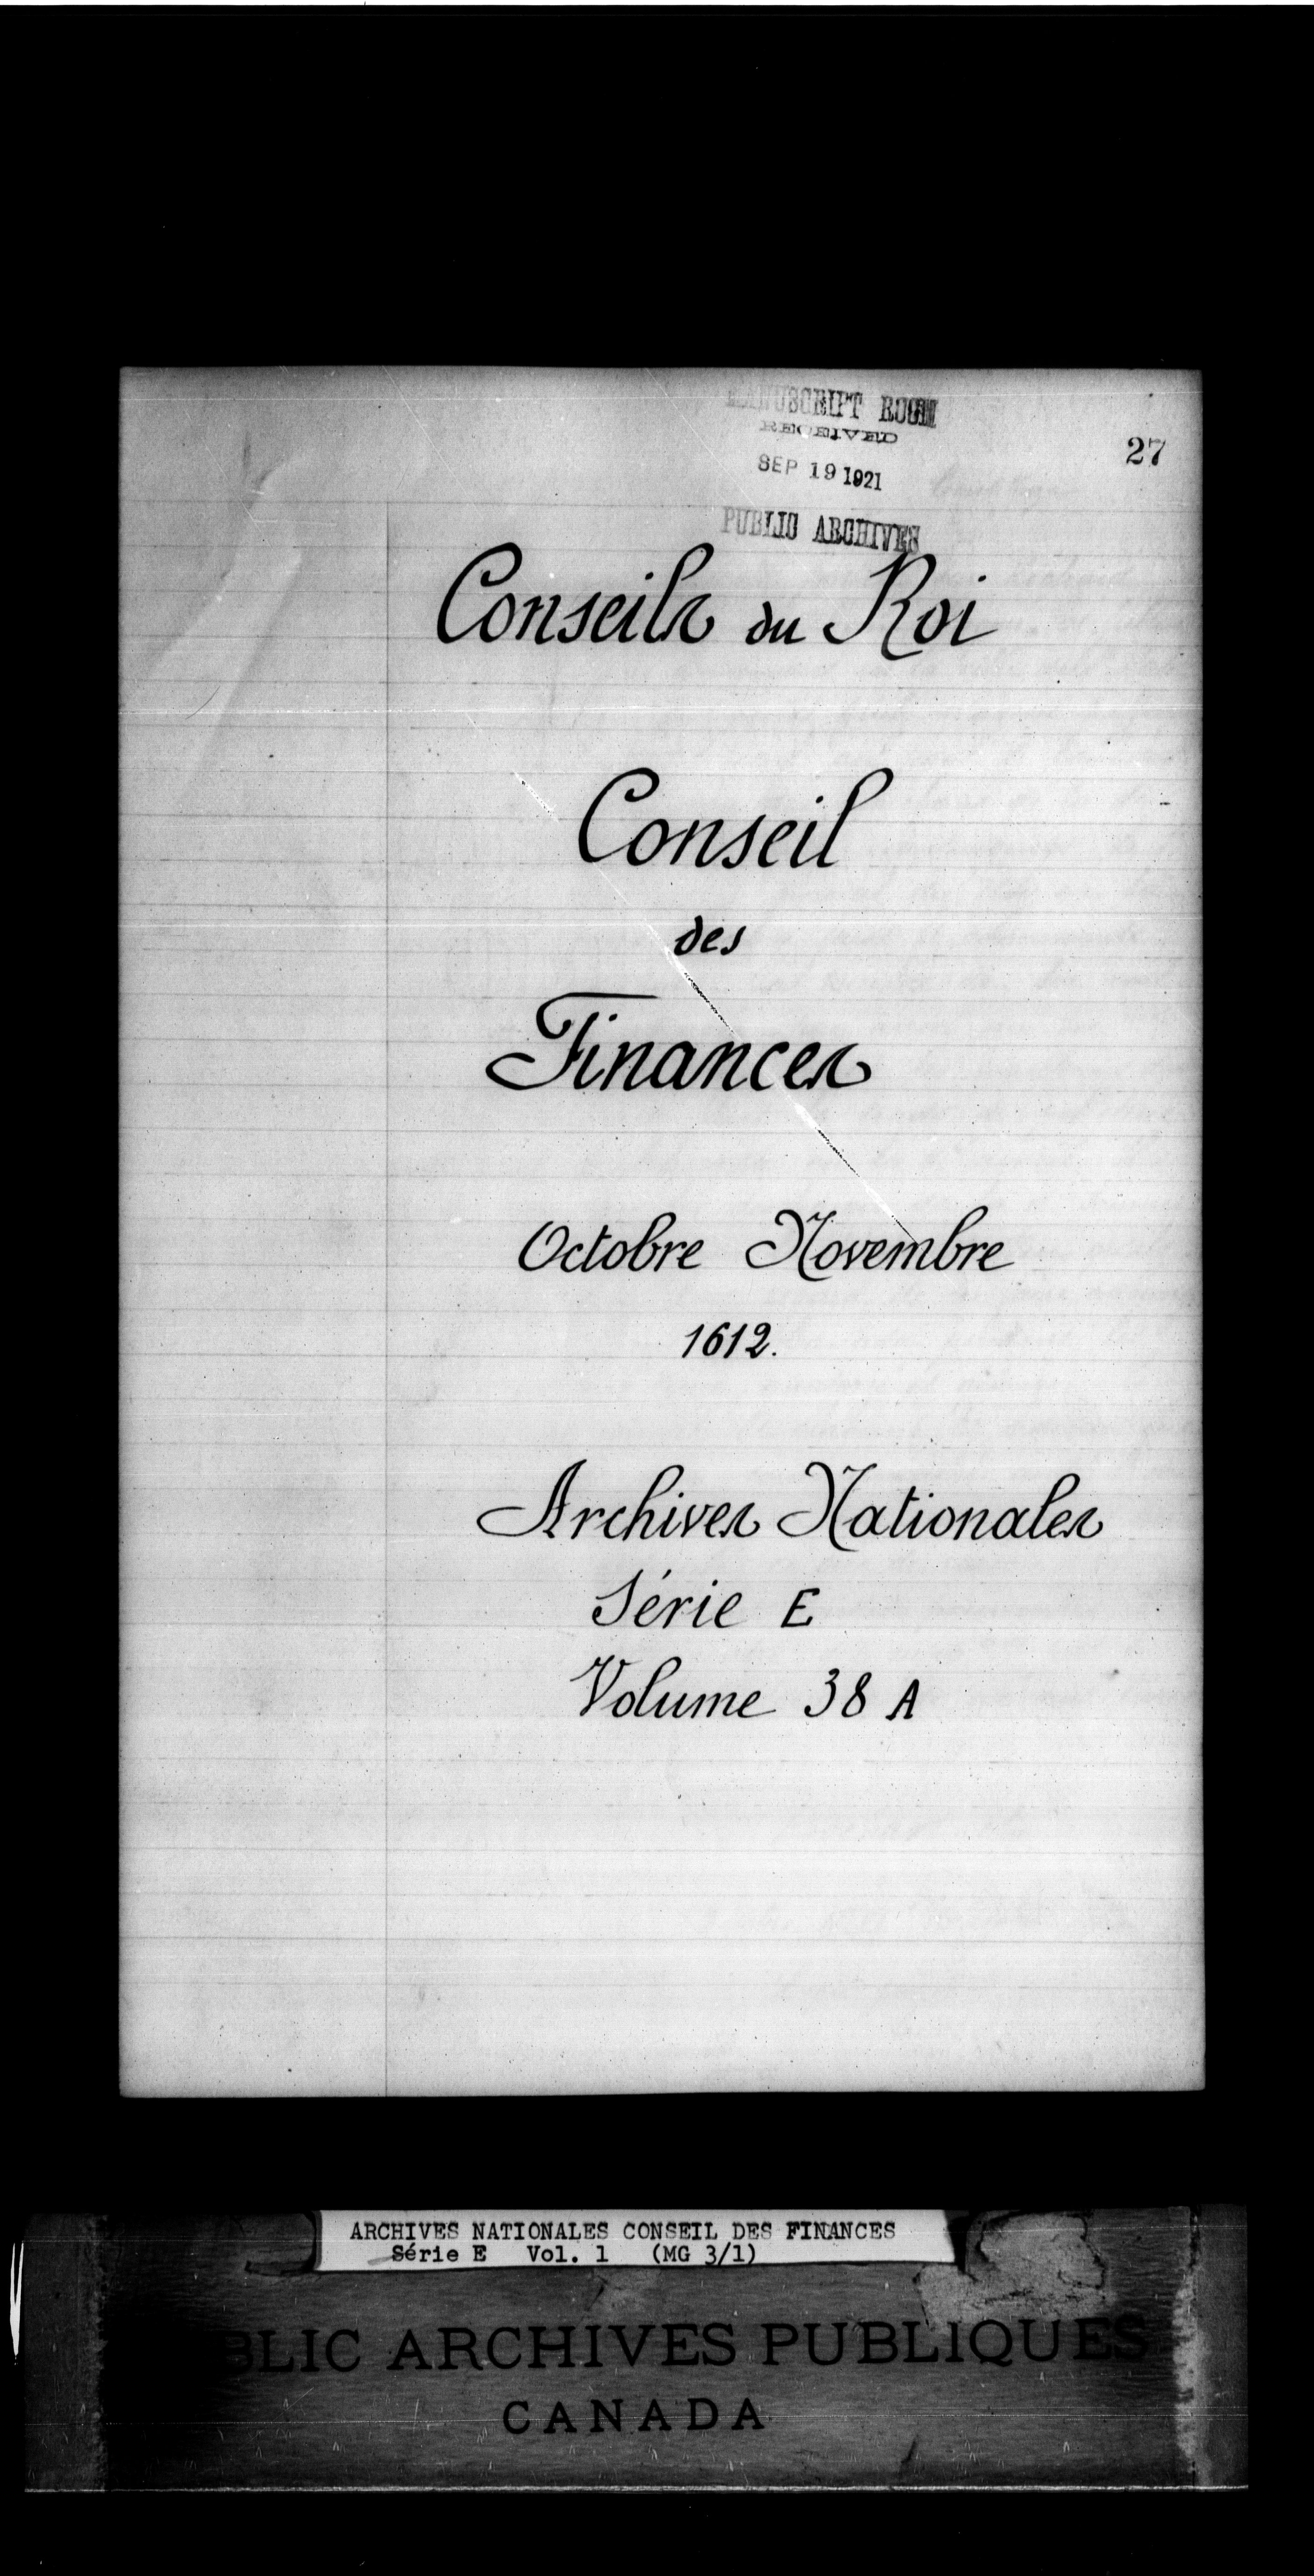 MANUSCRIPT ROOM
RECEIVED
27
SEP 19 1921
PUBLIC ARCHIVES
Conseils du Roi
Conseil
des
Finances
Octobre Novembre
1612.
Archives Nationales
Série E
Volume 38 A
ARCHIVES NATIONALES CONSEIL DES FINANCES
Série E Vol. 1 (MG 3/1)
BLIC ARCHIVES PUBLIQUES
CANADA